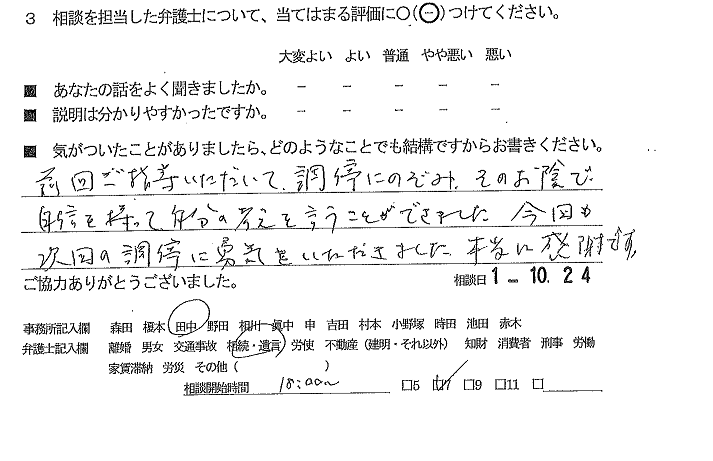 3 相談を担当した弁護士について、当てはまる評価に○(⊖)つけてください。
大変よい よい 普通 やや悪い 悪い
■ あなたの話をよく聞きましたか。 － － － － －
■ 説明は分かりやすかったですか。 － － － － －
■ 気がついたことがありましたら、どのようなことでも結構ですからお書きください。
前回ご指導いただいて、調停にのぞみ、そのお陰で、
自信を持って自分の考えを言うことができました 今回も
次回の調停に勇気をいただきました 本当に感謝です。
ご協力ありがとうございました。 相談日 1 10.24
事務所記入欄 森田 榎本 田中 野田 相川 眞中 申 吉田 村本 小野塚 時田 池田 赤木
弁護士記入欄 離婚 男女 交通事故 相続・遺言 労使 不動産（建明・それ以外） 知財 消費者 刑事 労働
家賃滞納 労災 その他（ ）
相談開始時間 18:00~ □5 □7 □9 □11 □